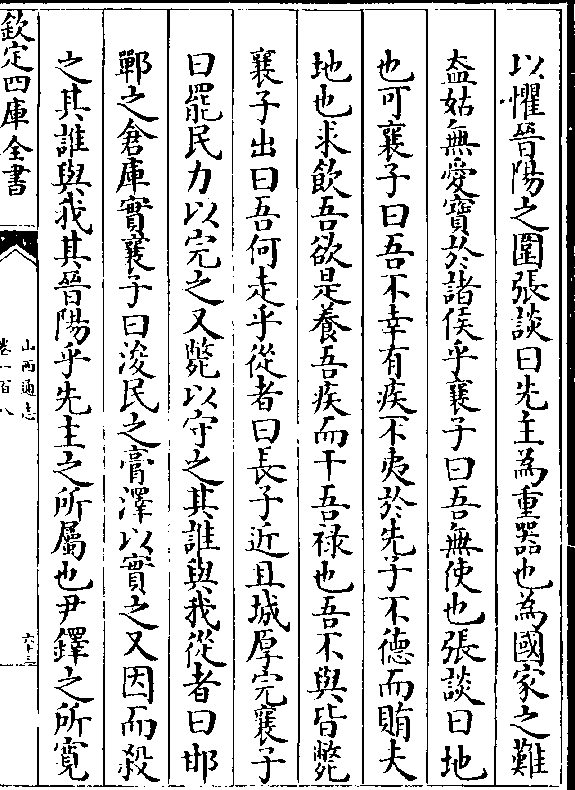 以懼晉陽之圍張談曰先主為重器也為國家之難
盍姑無愛寶於諸侯乎襄子曰吾無使也張談曰地
也可襄子曰吾不幸有疾不夷於先子不德而賄夫
地也求飲吾欲是養吾疾而干吾祿也吾不與皆斃
襄子出曰吾何走乎從者曰長子近且城厚完襄子
曰罷民力以完之又斃以守之其誰與我從者曰邯
鄲之倉庫實襄子曰浚民之膏澤以實之又因而殺
之其誰與我其晉陽乎先主之所屬也尹鐸之所寛
欽定四庫全書
山西通志
卷一百八
六十三